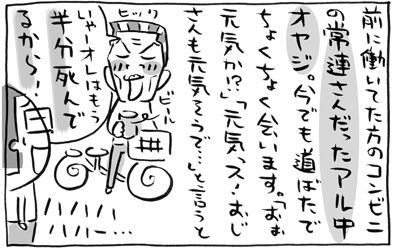 前に働いてた方のコンビニ
の常連さんだったアル中
オヤジ。今でも道ばたで
ちょくちょく会います。「おぉ
元気か!?」「元気っス!おじ
さんも元気そうで…」と言うと
ビクッ
ビール
いやーオレはもう
半分死んで
るから!
ハハハ…
ハハハー